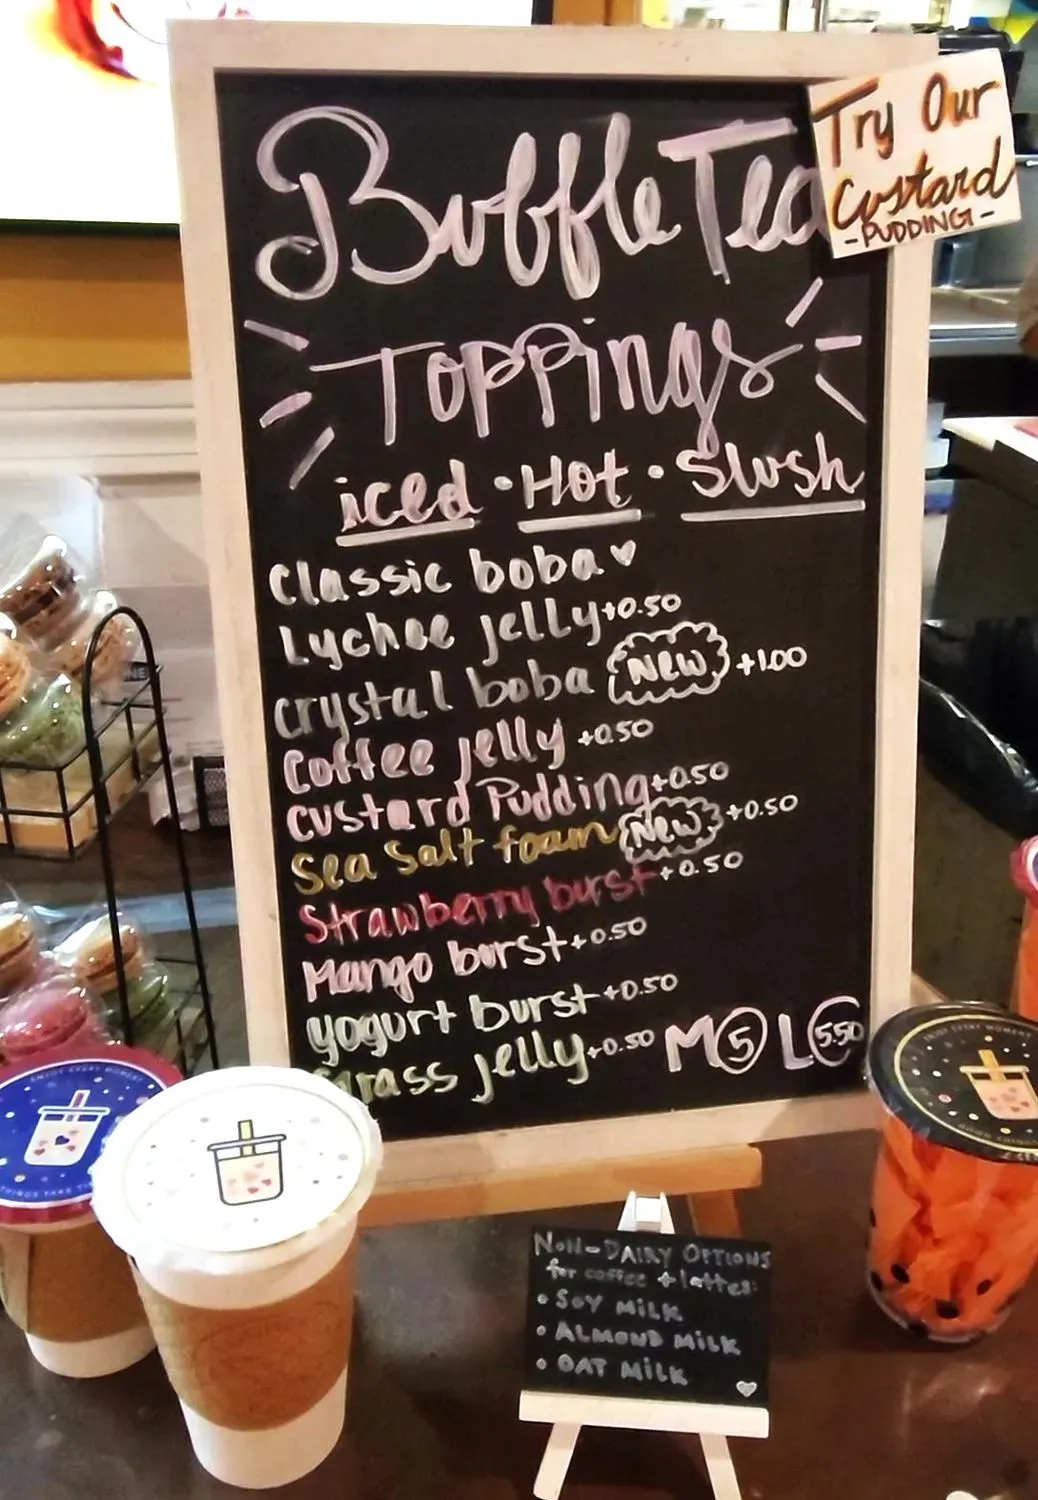 Buffle Tea
Try Our
Custard
-PUDDING-
Toppings
iced • Hot • Slush
Classic boba ♥
Lychee jelly +0.50
Crystal boba New +1.00
Coffee jelly +0.50
Custard Pudding +0.50
Sea Salt foam New +0.50
Strawberry burst +0.50
Mango burst +0.50
yogurt burst +0.50
Grass jelly +0.50
M 5 L 5.50
NON-DAIRY OPTIONS
for coffee + lattes:
• SOY MILK
• ALMOND MILK
• OAT MILK
ENJOY EVERY MOMENT
ENJOY EVERY MOMENT